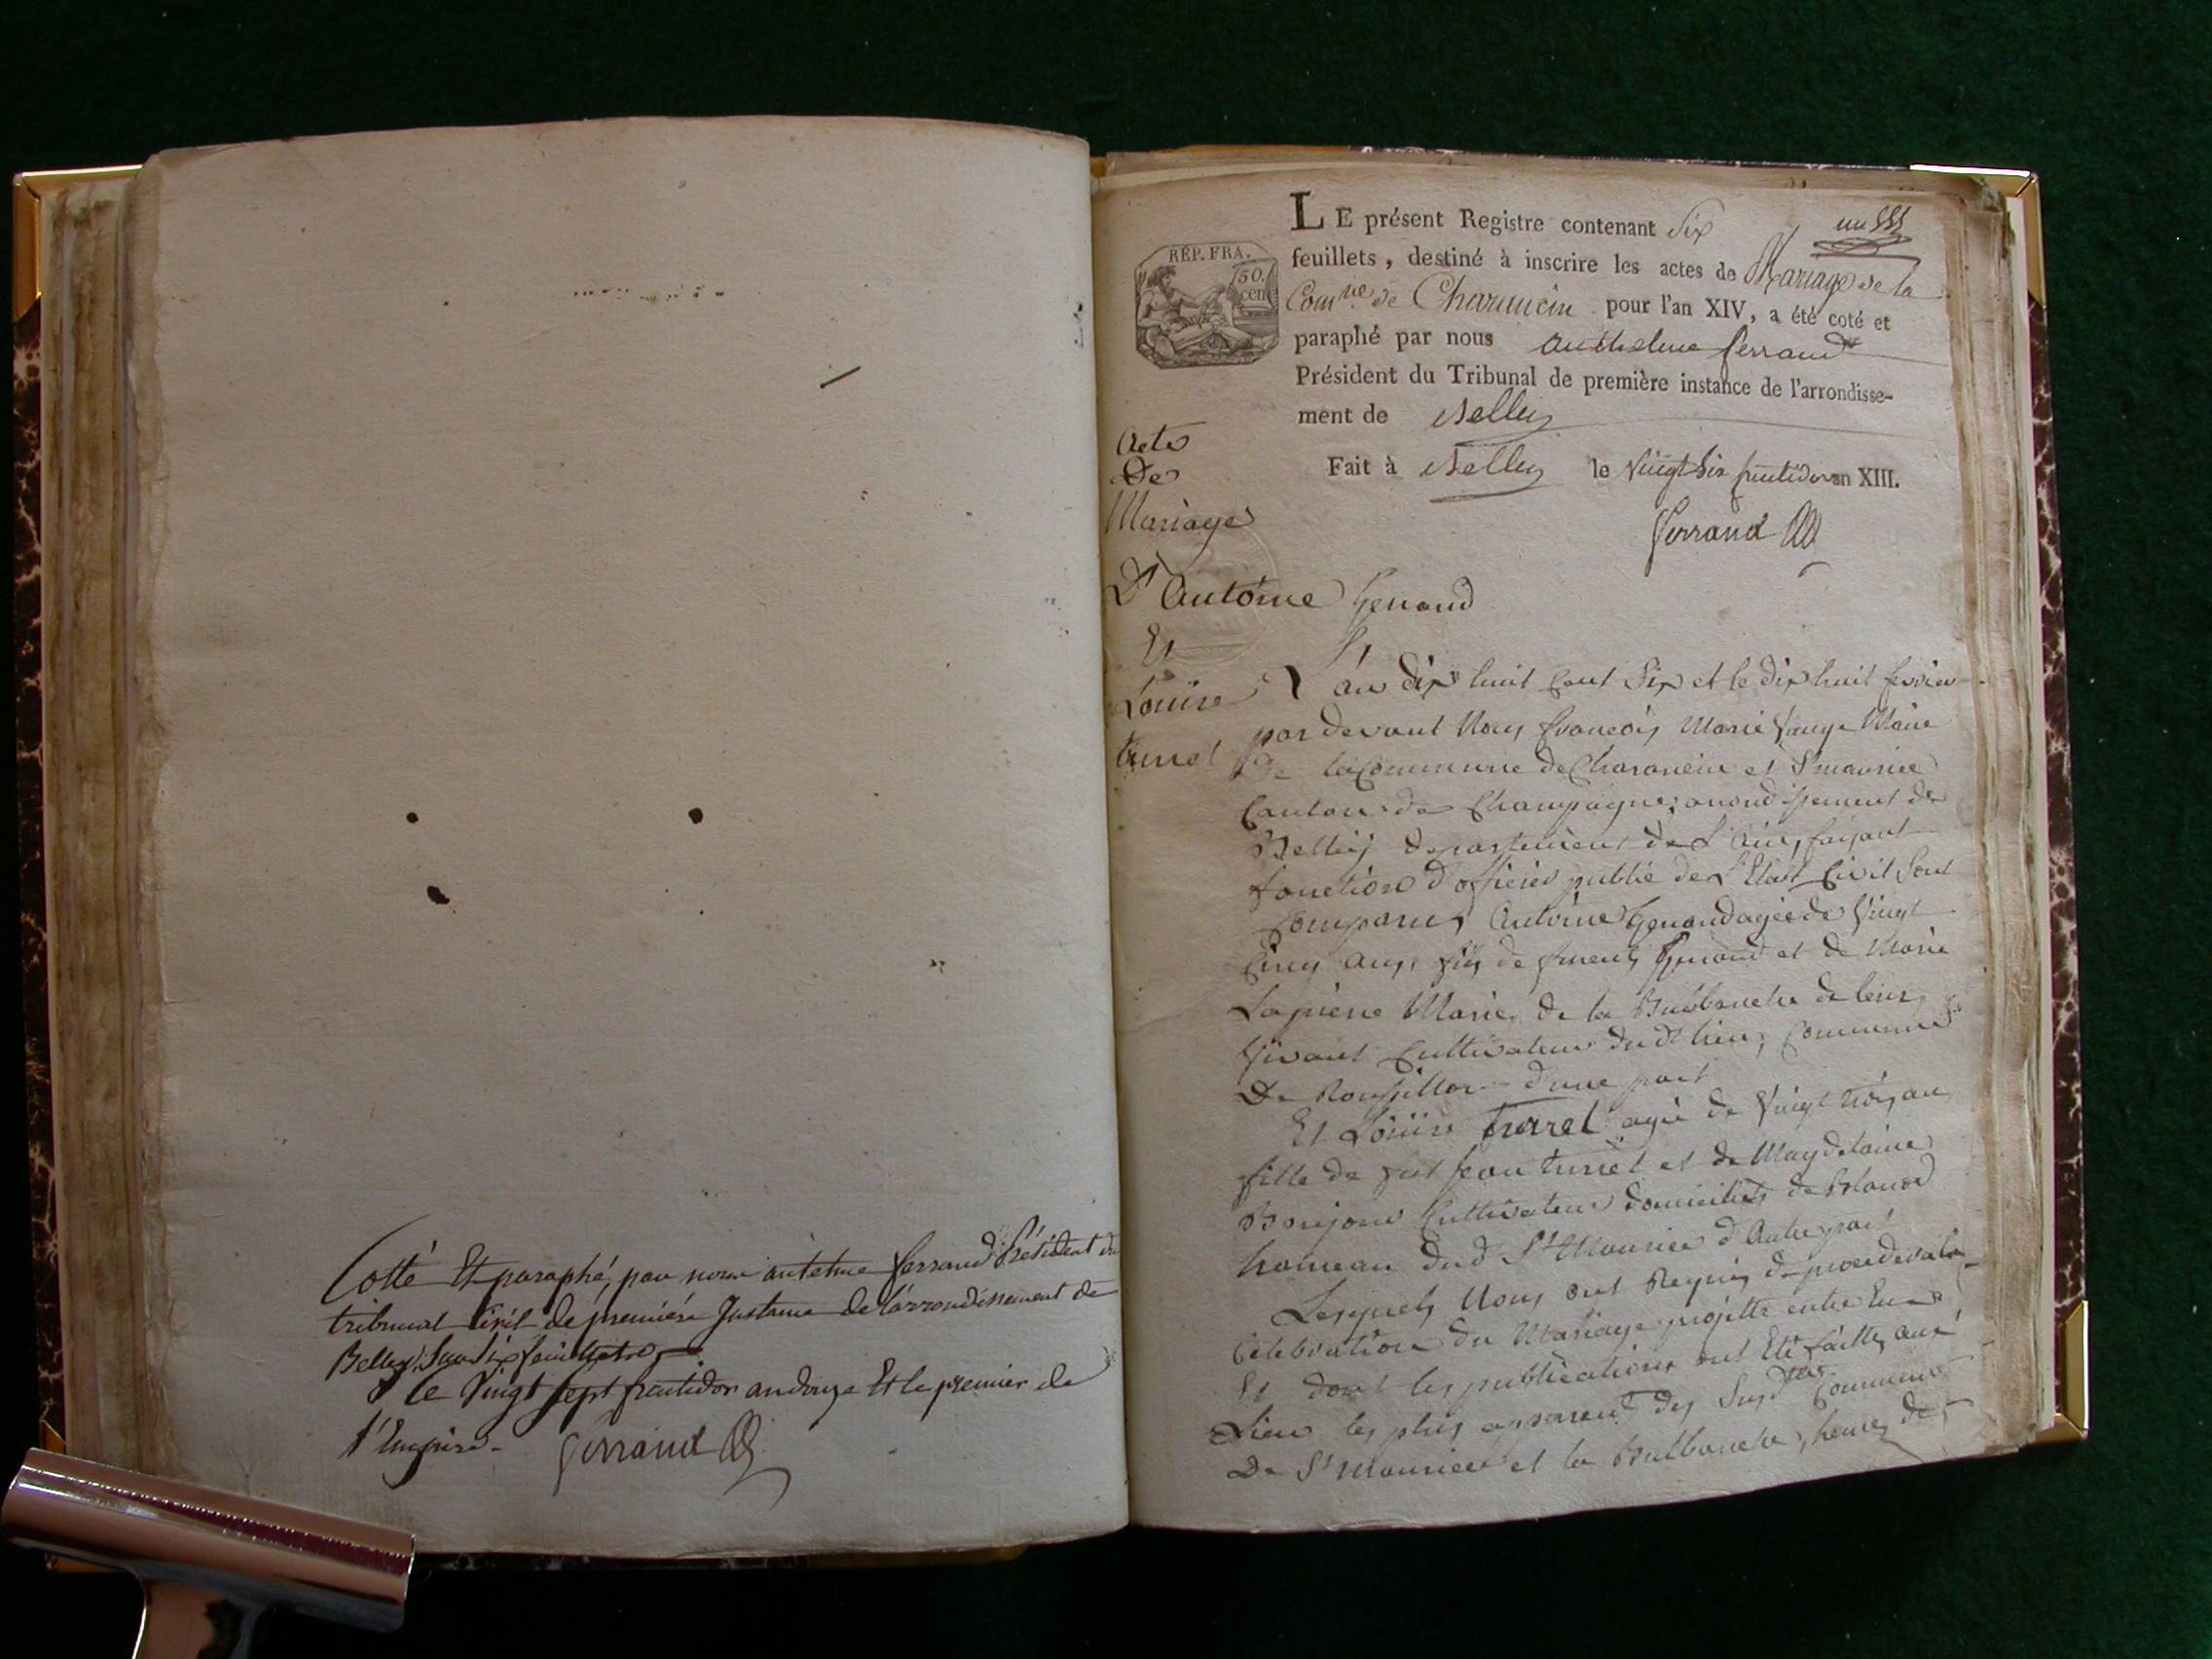 Cotté Et paraphé, par nous antelme ferrand Président du
tribunal Civil de première Instance de l'arrondissement de
Belley, Sur Six feuillets
le Vingt Sept fructidor an douze Et le premier de
l'Empire. ferrand
LE présent Registre contenant Six
feuillets, destiné à inscrire les actes de Mariage de la
Comne de Charancin pour l'an XIV, a été coté et
paraphé par nous anthelme ferrand
Président du Tribunal de première instance de l'arrondisse-
ment de Belley
Fait à Belley le Vingt Six fructidor an XIII.
ferrand
un
RÉP. FRA.
50.
cen
Acte
De
Mariage
D'Antoine Genand
Et
Louise
turrel
L'an dix huit Cent Six et le dix huit fevrier
par devant Nous françois Marie Maire
De la Commune de Charancin et St maurice
Canton de Champagne, arrondissement de
Belley departement de l'Ain, faisant
fonction d'officier public de l'Etat Civil Sont
Comparus Antoine Genand agée de Vingt
Cinq ans, fils de Genand et de Marie
Lapierre Mariés de la Burbanche de leur
Vivant Cultivateur dudt lieu, Commune
De Roussillon d'une part
Et Louise Turrel agée de Vingt trois ans
fille de fut Jean turrel et de Magdelaine
Cultivateur domiciliés de
hameau dud St Maurice d'Autre part
Lesquels Nous ont Requis de proceder a la
Célébration du Mariage projetté entre Eux
Et dont les publications ont Eté faittes aux
Lieu les plus des Susdttes Commune
De St maurice et la Burbanche, heures de